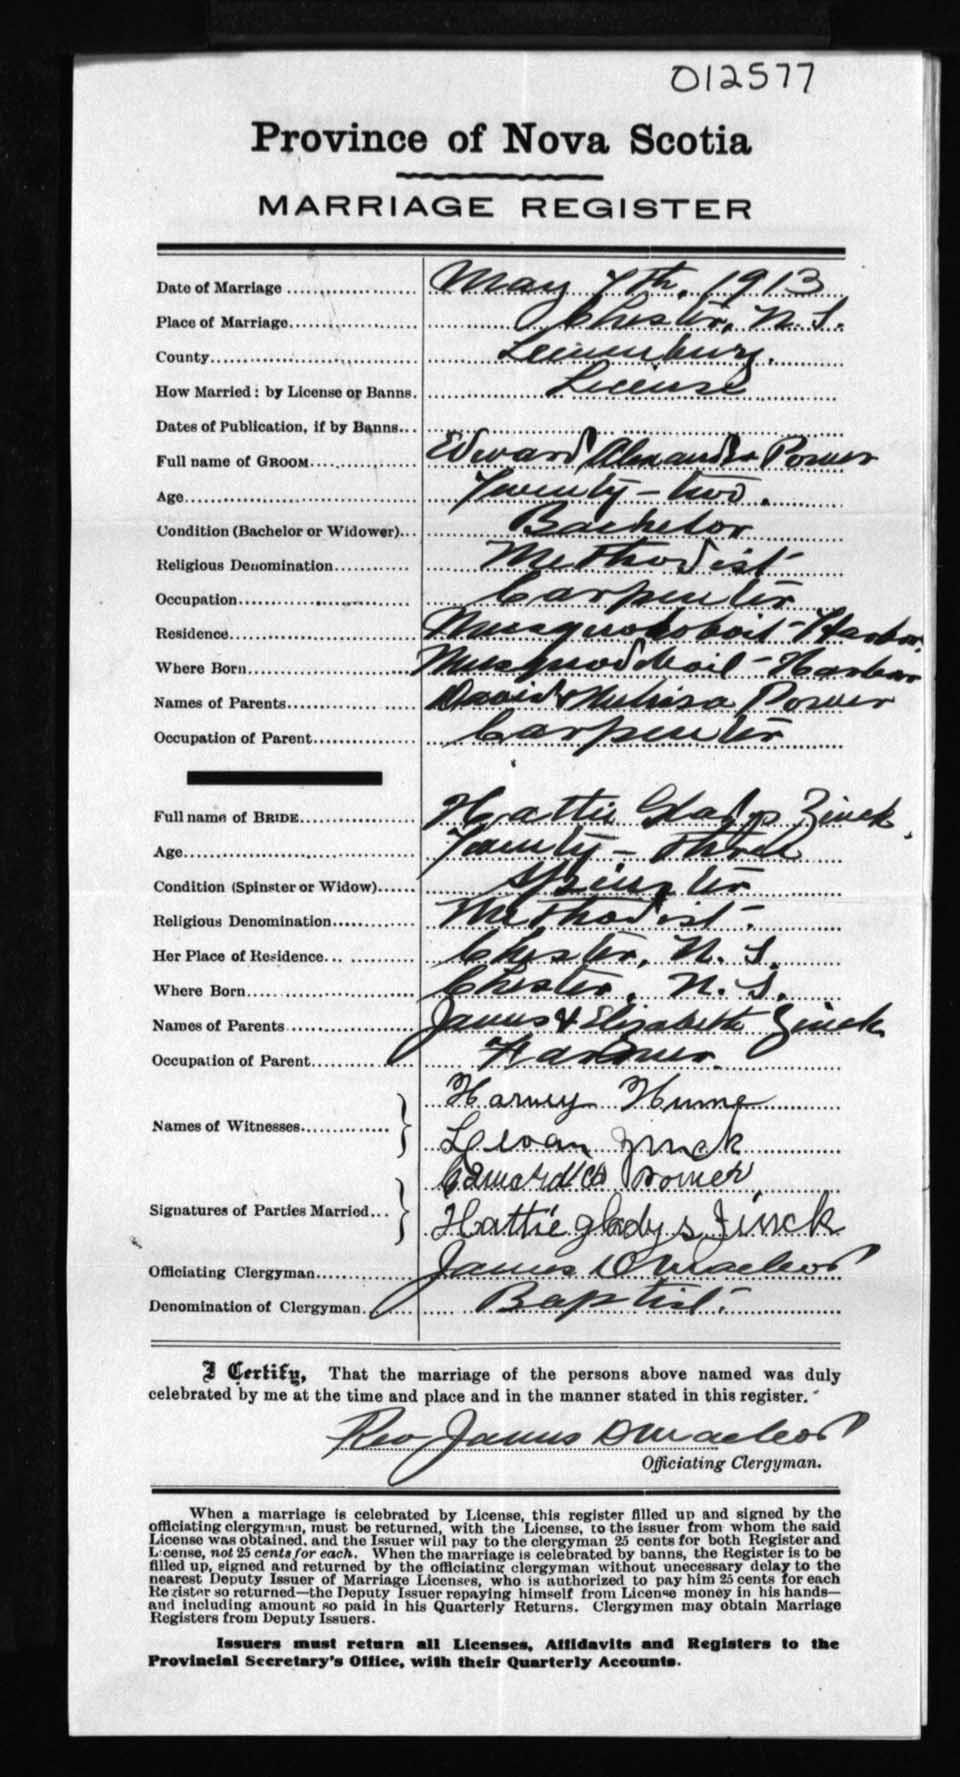 012577
Province of Nova Scotia
MARRIAGE REGISTER
Date of Marriage May 7th, 1913
Place of Marriage Chester, N.S.
County Lunenburg.
How Married: by License or Banns. License
Dates of Publication, if by Banns
Full name of GROOM Edward Alexander Power
Age Twenty-two.
Condition (Bachelor or Widower) Bachelor
Religious Denomination Methodist
Occupation Carpenter
Residence Musquodoboit Harbor
Where Born Musquodoboit Harbor
Names of Parents David & Melissa Power
Occupation of Parent Carpenter
Full name of BRIDE Hattie Gladys Zinck
Age Twenty-three
Condition (Spinster or Widow) Spinster
Religious Denomination Methodist.
Her Place of Residence Chester, N.S.
Where Born Chester, N.S.
Names of Parents James & Elizabeth Zinck
Occupation of Parent
Names of Witnesses Harvey Hume
Zinck
Signatures of Parties Married Edward Power
Hattie gladys Zinck
Officiating Clergyman James D Macleod
Denomination of Clergyman Baptist.
I Certify, That the marriage of the persons above named was duly
celebrated by me at the time and place and in the manner stated in this register.
Rev James D Macleod
Officiating Clergyman.
When a marriage is celebrated by License, this register filled up and signed by the
officiating clergyman, must be returned, with the License, to the issuer from whom the said
License was obtained, and the Issuer will pay to the clergyman 25 cents for both Register and
License, not 25 cents for each. When the marriage is celebrated by banns, the Register is to be
filled up, signed and returned by the officiating clergyman without unecessary delay to the
nearest Deputy Issuer of Marriage Licenses, who is authorized to pay him 25 cents for each
Register so returned—the Deputy Issuer repaying himself from License money in his hands—
and including amount so paid in his Quarterly Returns. Clergymen may obtain Marriage
Registers from Deputy Issuers.
Issuers must return all Licenses, Affidavits and Registers to the
Provincial Secretary's Office, with their Quarterly Accounts.